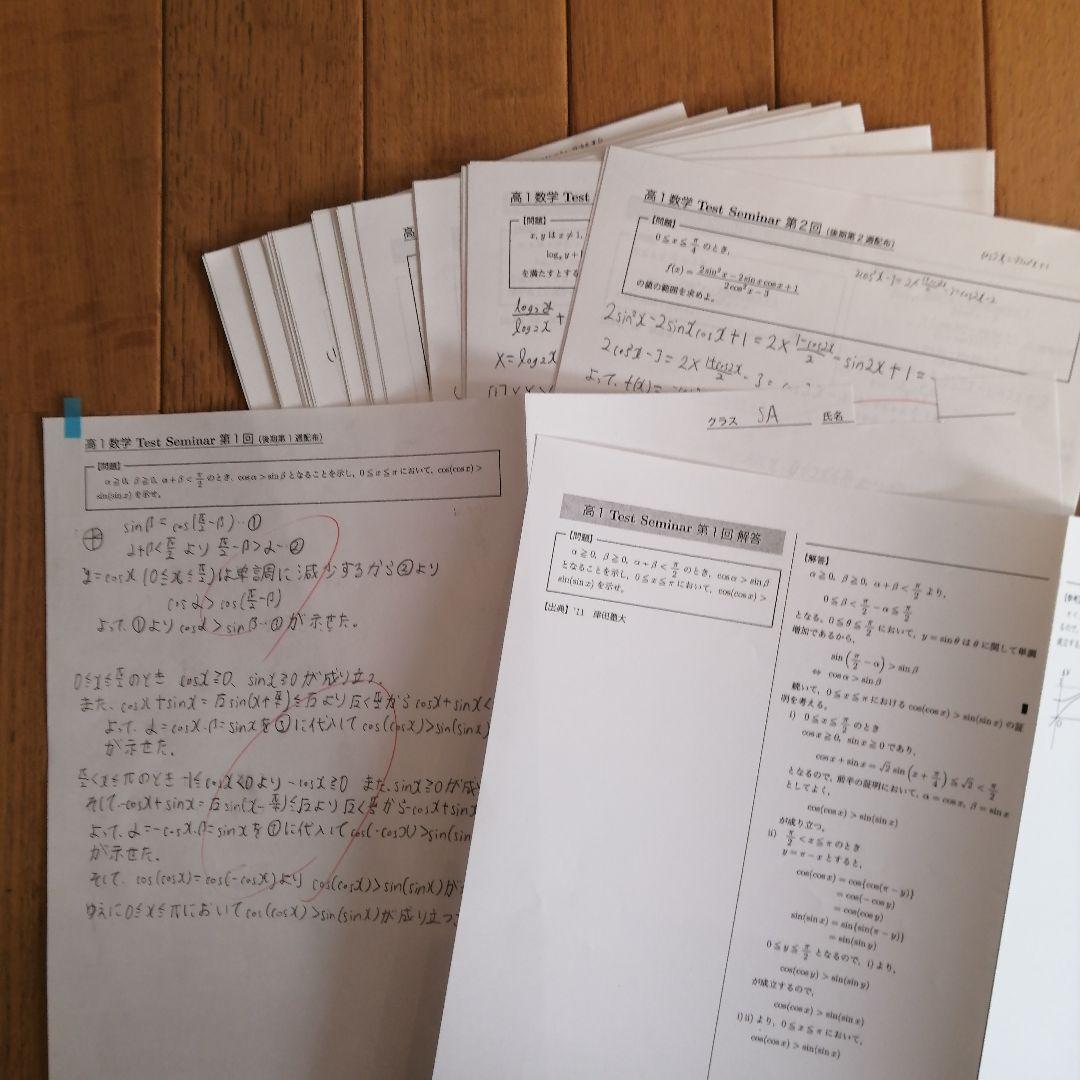 高1数学 Test
【問題】
x, y は x ≠ 1,
log_x y +
を満たすとする
log₂y/log₂x +
X = log₂X
高1数学 Test Seminar 第2回 (後期第2週配布)
【問題】
0 ≦ x ≦ π/4 のとき,
f(x) = (2sin²x − 2sin x cos x + 1)/(2cos²x − 3)
の値の範囲を求めよ。
2sin²x − 2sinx cosx + 1 = 2× (1−cos2x)/2 − sin2x + 1 =
2cos²x − 3 = 2× (1+cos2x)/2 − 3 =
よって, f(x) =
クラス SA 氏名
高1数学 Test Seminar 第1回 (後期第1週配布)
【問題】
α ≧ 0, β ≧ 0, α + β < π/2 のとき, cos α > sin β となることを示し, 0 ≦ x ≦ π において, cos(cos x) >
sin(sin x) を示せ。
sinβ = cos(π/2 − β) … ①
α+β < π/2 より π/2 − β > α … ②
y = cosx (0 ≦ x ≦ π/2) は単調に減少するから②より
cosα > cos(π/2 − β)
よって, ①より cosα > sinβ … が示せた。
0 ≦ x ≦ π/2 のとき cosx ≧ 0, sinx ≧ 0 が成り立つ。
また, cosx + sinx = √2 sin(x + π/4) ≦ √2 より √2 < π/2 から cosx + sinx <
よって, α = cosx, β = sinx を③に代入して cos(cosx) > sin(sinx)
が示せた。
π/2 < x ≦ π のとき −1 ≦ cosx < 0 より −cosx ≧ 0 また, sinx ≧ 0 が成
そして −cosx + sinx = √2 sin(x − π/4) ≦ √2 より √2 < π/2 から −cosx + sinx
よって, α = −cosx, β = sinx を①に代入して cos(−cosx) > sin(sin
が示せた。
そして, cos(cosx) = cos(−cosx) より cos(cosx) > sin(sinx) が
ゆえに 0 ≦ x ≦ π において cos(cosx) > sin(sinx) が成り立つ
高1 Test Seminar 第1回 解答
【問題】
α ≧ 0, β ≧ 0, α + β < π/2 のとき, cos α > sin β
となることを示し, 0 ≦ x ≦ π において, cos(cos x) >
sin(sin x) を示せ。
【出典】'11 津田塾大
【解答】
α ≧ 0, β ≧ 0, α + β < π/2 より,
0 ≦ β < π/2 − α ≦ π/2
となる。0 ≦ θ ≦ π/2 において, y = sin θ は θ に関して単調
増加であるから,
sin(π/2 − α) > sin β
⇔ cos α > sin β
続いて, 0 ≦ x ≦ π における cos(cos x) > sin(sin x) の証
明を考える。
i) 0 ≦ x ≦ π/2 のとき
cos x ≧ 0, sin x ≧ 0 であり,
cos x + sin x = √2 sin(x + π/4) ≦ √2 < π/2
となるので, 前半の証明において, α = cos x, β = sin x
としてよく,
cos(cos x) > sin(sin x)
が成り立つ。
ii) π/2 < x ≦ π のとき
y = π − x とすると,
cos(cos x) = cos{cos(π − y)}
= cos(− cos y)
= cos(cos y)
sin(sin x) = sin{sin(π − y)}
= sin(sin y)
0 ≦ y ≦ π/2 となるので, i) より,
cos(cos y) > sin(sin y)
が成立するので,
cos(cos x) > sin(sin x)
i) ii) より, 0 ≦ x ≦ π において,
cos(cos x) > sin(sin x)